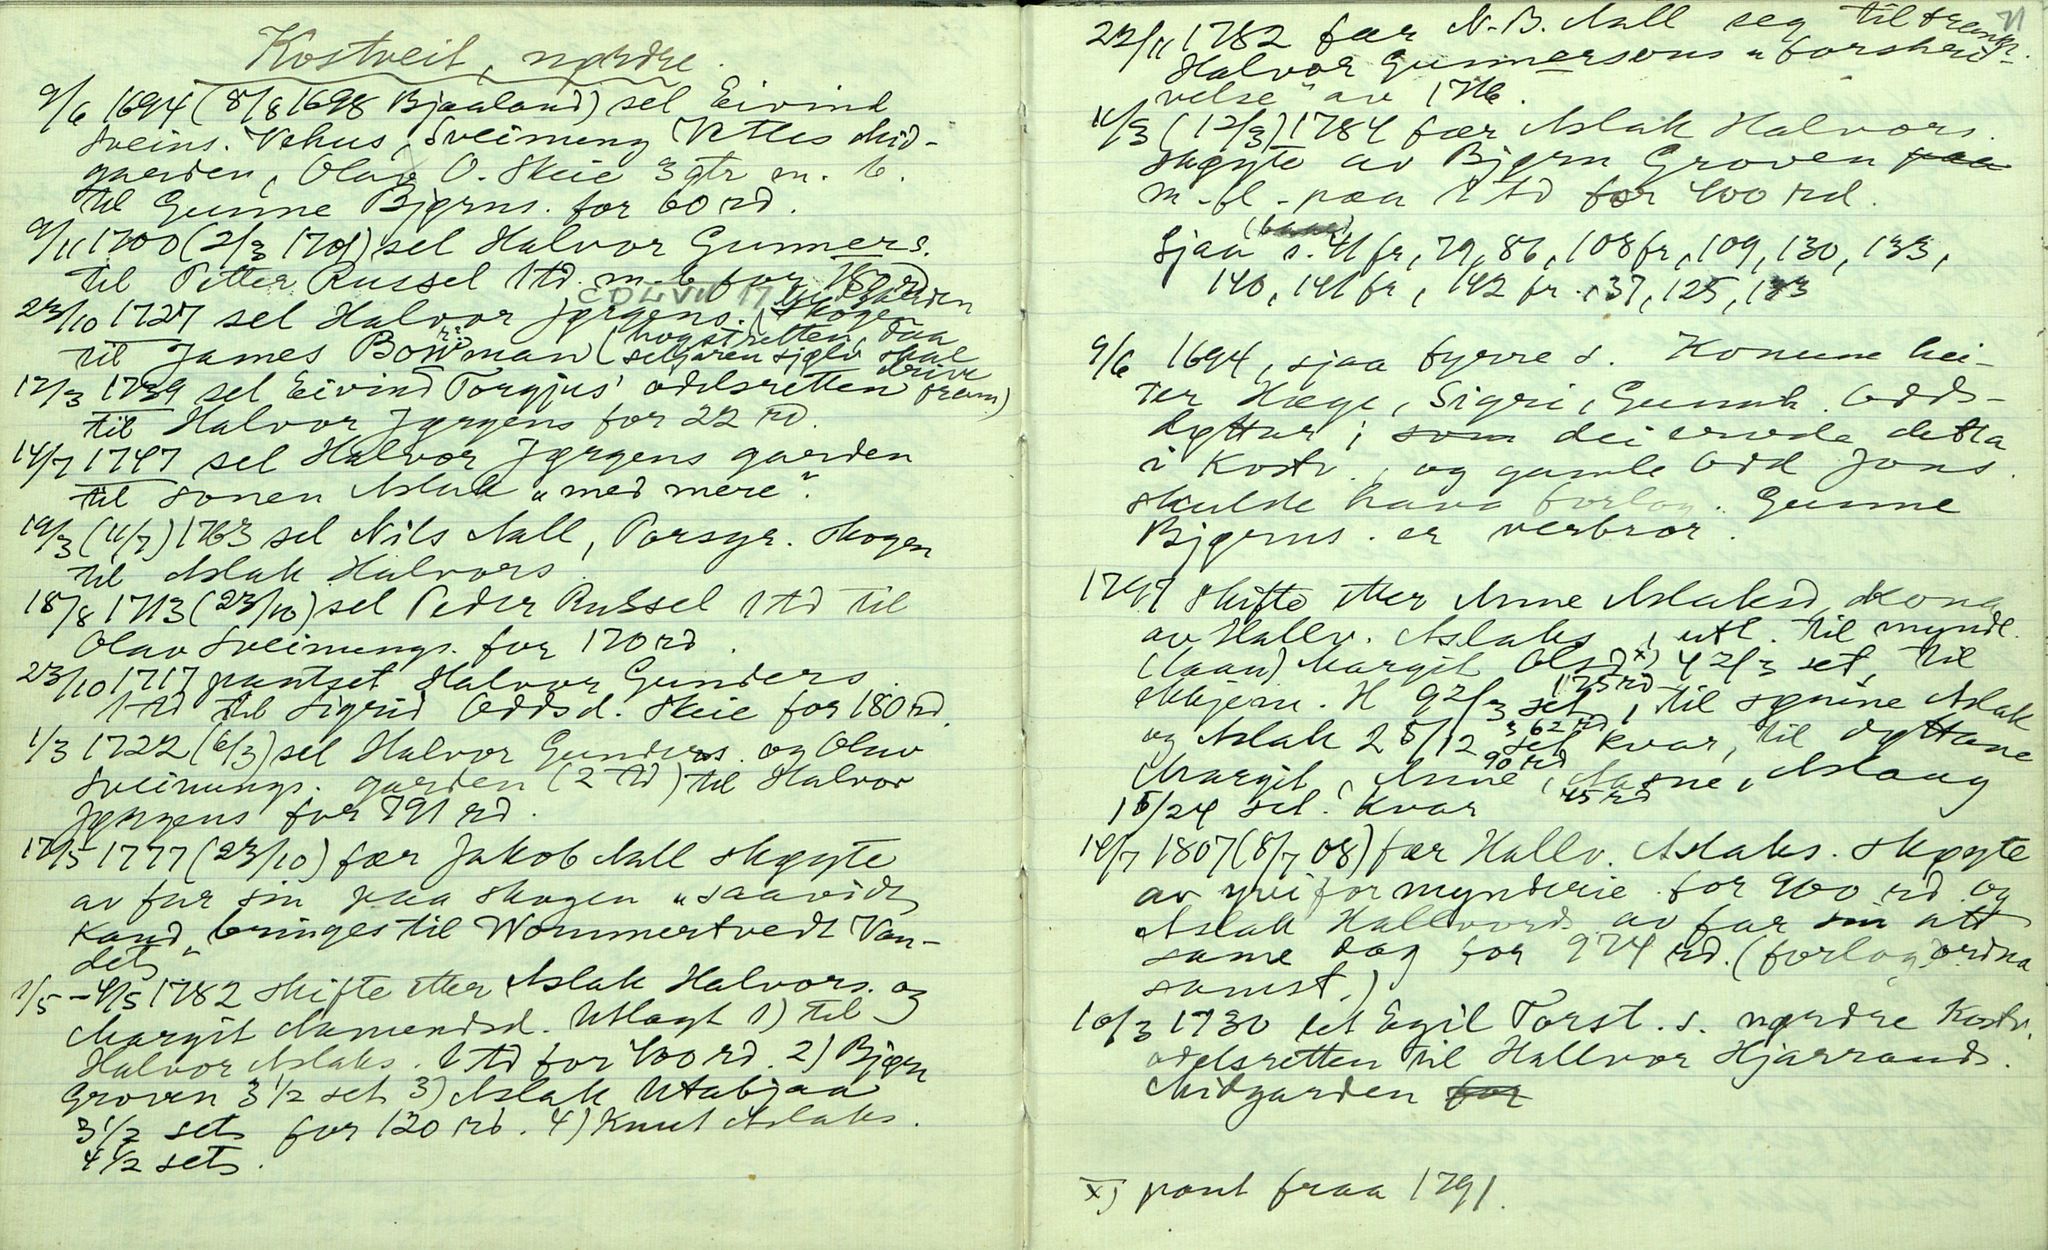 Kostveit, nørdre.
9/6 1694 (8/8 1698 Bjaaland) sel Eivind
Sveins. Vehus, Sveinung Vetles Mid-
gaarden, Olav O. Skeie 3 gtr m. b.
til Gunne Bjørns. for 60 rd.
9/11 1700 (2/3 1701) sel Halvor Gunners.
til Petter Russel 1 td. m. b for 180 rd
23/10 1727 sel Halvor Jørgens. skogen
til James Bowman (hogstretten, daa
seljaren sjølv skal drive fram)
12/3 1739 sel Eivind Torgjus' odelsretten
til Halvor Jørgens for 22 rd.
14/7 1747 sel Halvor Jørgens garden
til sonen Aslak "med mere".
19/3 (11/7) 1763 sel Nils Aall, Porsgr. skogen
til Aslak Halvors.
18/8 1713 (23/10) sel Peder Russel 1 td til
Olav Sveinungs. for 170 rd.
23/10 1717 pantset Halvor Gunders.
1 td til Sigrid Oddsd. Skeie for 180 rd.
1/3 1722 (6/3) sel Halvor Gunders. og Olav
Sveinungs. garden (2 td) til Halvor
Jørgens for 791 rd.
12/5 1777 (23/10) fær Jakob Aall skøyte
av far sin paa skogen "saavidt
kand bringes til Wommertvedt Van-
det"
1/5 - 4/5 1782 skifte etter Aslak Halvors. og
Margit Aamundsd. Utlagt 1) til
Halvor Aslaks. 1 td for 400 rd. 2) Bjørn
Groven 3 1/2 set 3) Aslak Utabjaa
3 1/2 sets for 120 rd. 4) Knut Aslaks.
4 1/2 sets.
71
22/11 1782 fær N. B. Aall seg til
Halvor Gunnersons "forskri-
velse" av 1716.
11/3 (12/3) 1784 fær Aslak Halvors.
skøyte av Bjørn Groven paa
m. fl. paa 1 td for 400 rd.
Sjaa s. 41 fr, 79, 86, 108 fr, 109, 130, 133,
140, 141 fr, 142 fr. 137, 125, 133
9/6 1694, sjaa fyrre s. Konune hei-
ter Hæge, Sigri, Gunnh. Odds-
døttur; som dei ervde detta
i Kostv., og gamle Odd Jons.
skulde hava forlog. Gunne
Bjørns. er verbror.
1797 skifte etter Anne Aslaksd, kona
av Hallv. Aslaks, utl. til myndl.
(laan) Margit Olsd x) 4 2/3 set, til
Ekkjem. H 9 2/3 set, til sønine Aslak
175 rd
og Aslak 2 5/12 set kvar, til døttane
362 rd
Margit, Anne, Aasne, Aslaug
90 rd
15/24 set. kvar 45 rd
14/7 1807 (8/7 08) fær Hallv. Aslaks. skøyte
av yviformynderie for 900 rd og
Aslak Hallvords. av far sin att
same dag for 974 rd. (forlog ordna
samst.)
10/3 1730 let Egil Torst. s. nørdre Kostv.
odelsretten til Hallvor Hjarrands.
Midgarden for
x) pant fraa 1791.